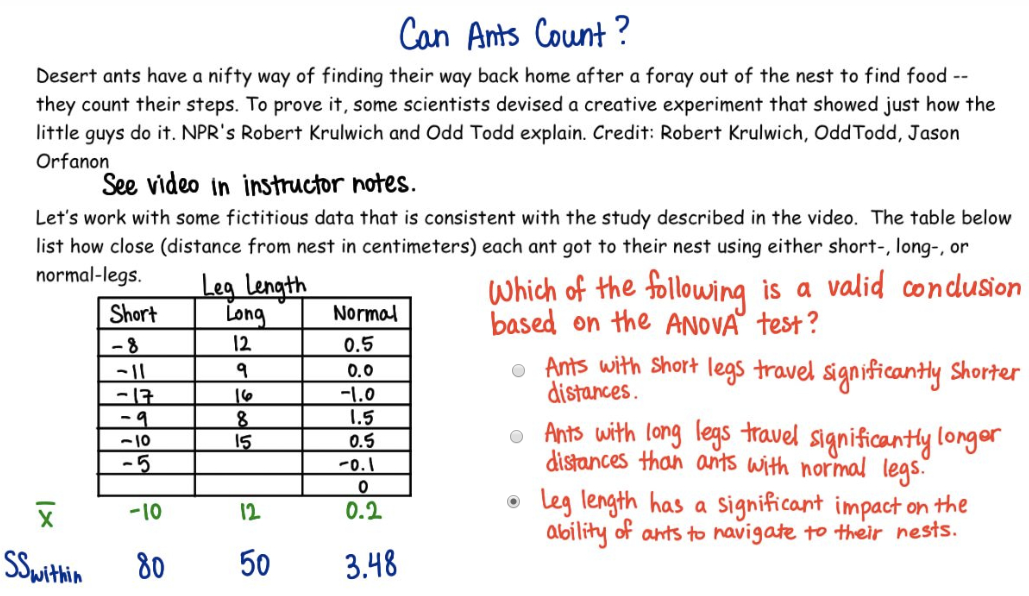 Can Ants Count?
Desert ants have a nifty way of finding their way back home after a foray out of the nest to find food --
they count their steps. To prove it, some scientists devised a creative experiment that showed just how the
little guys do it. NPR's Robert Krulwich and Odd Todd explain. Credit: Robert Krulwich, OddTodd, Jason
Orfanon
See video in instructor notes.
Let's work with some fictitious data that is consistent with the study described in the video. The table below
list how close (distance from nest in centimeters) each ant got to their nest using either short-, long-, or
normal-legs.
Leg Length
Short Long Normal
-8 12 0.5
-11 9 0.0
-17 16 -1.0
-9 8 1.5
-10 15 0.5
-5 -0.1
0
x̅ -10 12 0.2
SSwithin 80 50 3.48
Which of the following is a valid conclusion
based on the ANOVA test?
Ants with short legs travel significantly shorter
distances.
Ants with long legs travel significantly longer
distances than ants with normal legs.
Leg length has a significant impact on the
ability of ants to navigate to their nests.